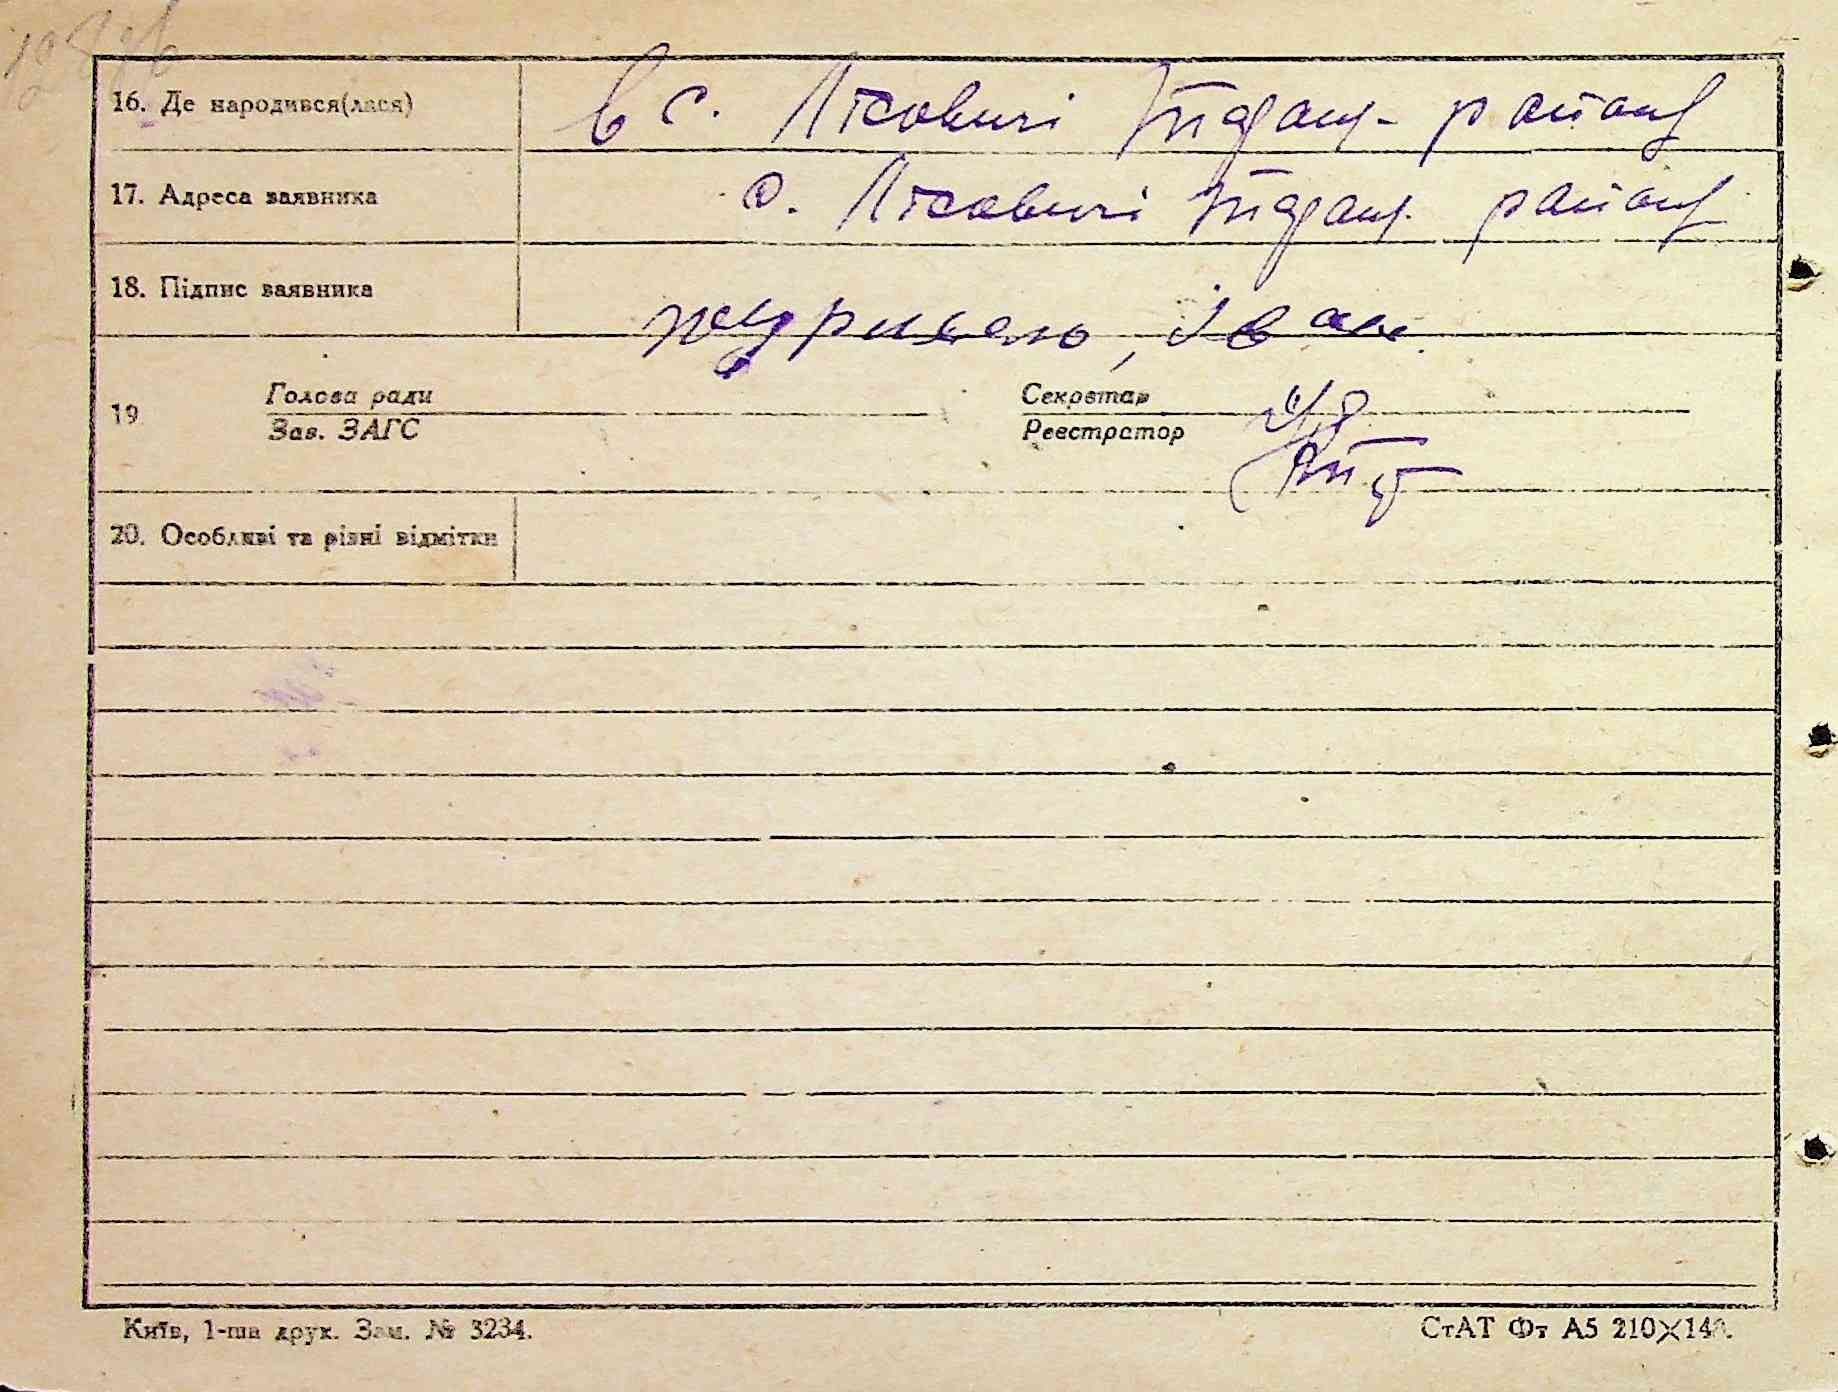 16. Де народився(лася) в с. Лісовичі Таращ. району
17. Адреса заявника с. Лісовичі Таращ. району
18. Підпис заявника Іван
19 Голова ради Секретар
Зав. ЗАГС Реєстратор
20. Особливі та різні відмітки
Київ, 1-ша друк. Зам. № 3234.
СтАТ Фт А5 210×148.